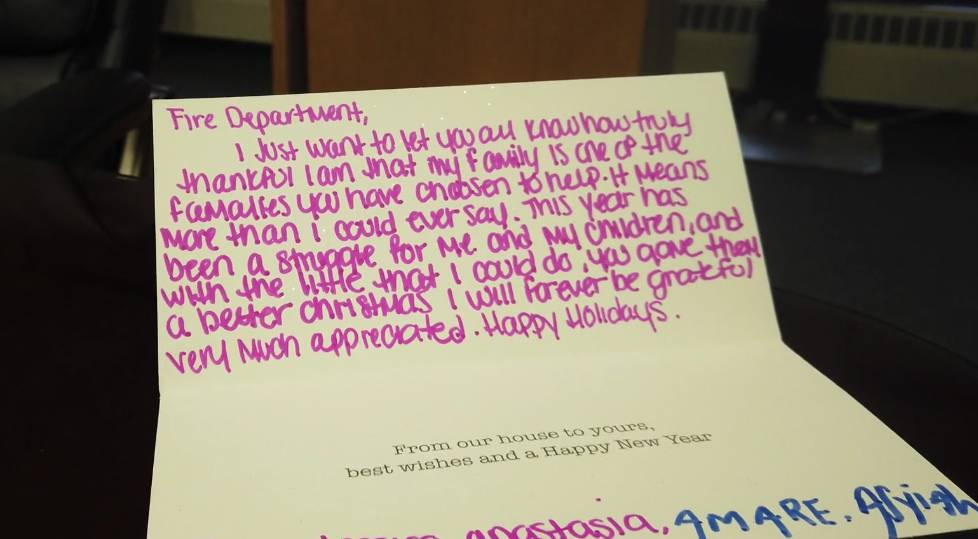 Fire Department,
I Just want to let you all know how truly
thankful I am that my family is one of the
famalies you have choosen to help. It Means
More than I could ever say. This year has
been a struggle for Me and My Children, and
with the little that I could do, you gave them
a better christmas I will forever be grateful
very Much appreciated. Happy Holidays.
From our house to yours,
best wishes and a Happy New Year
anastasia, AMARE.